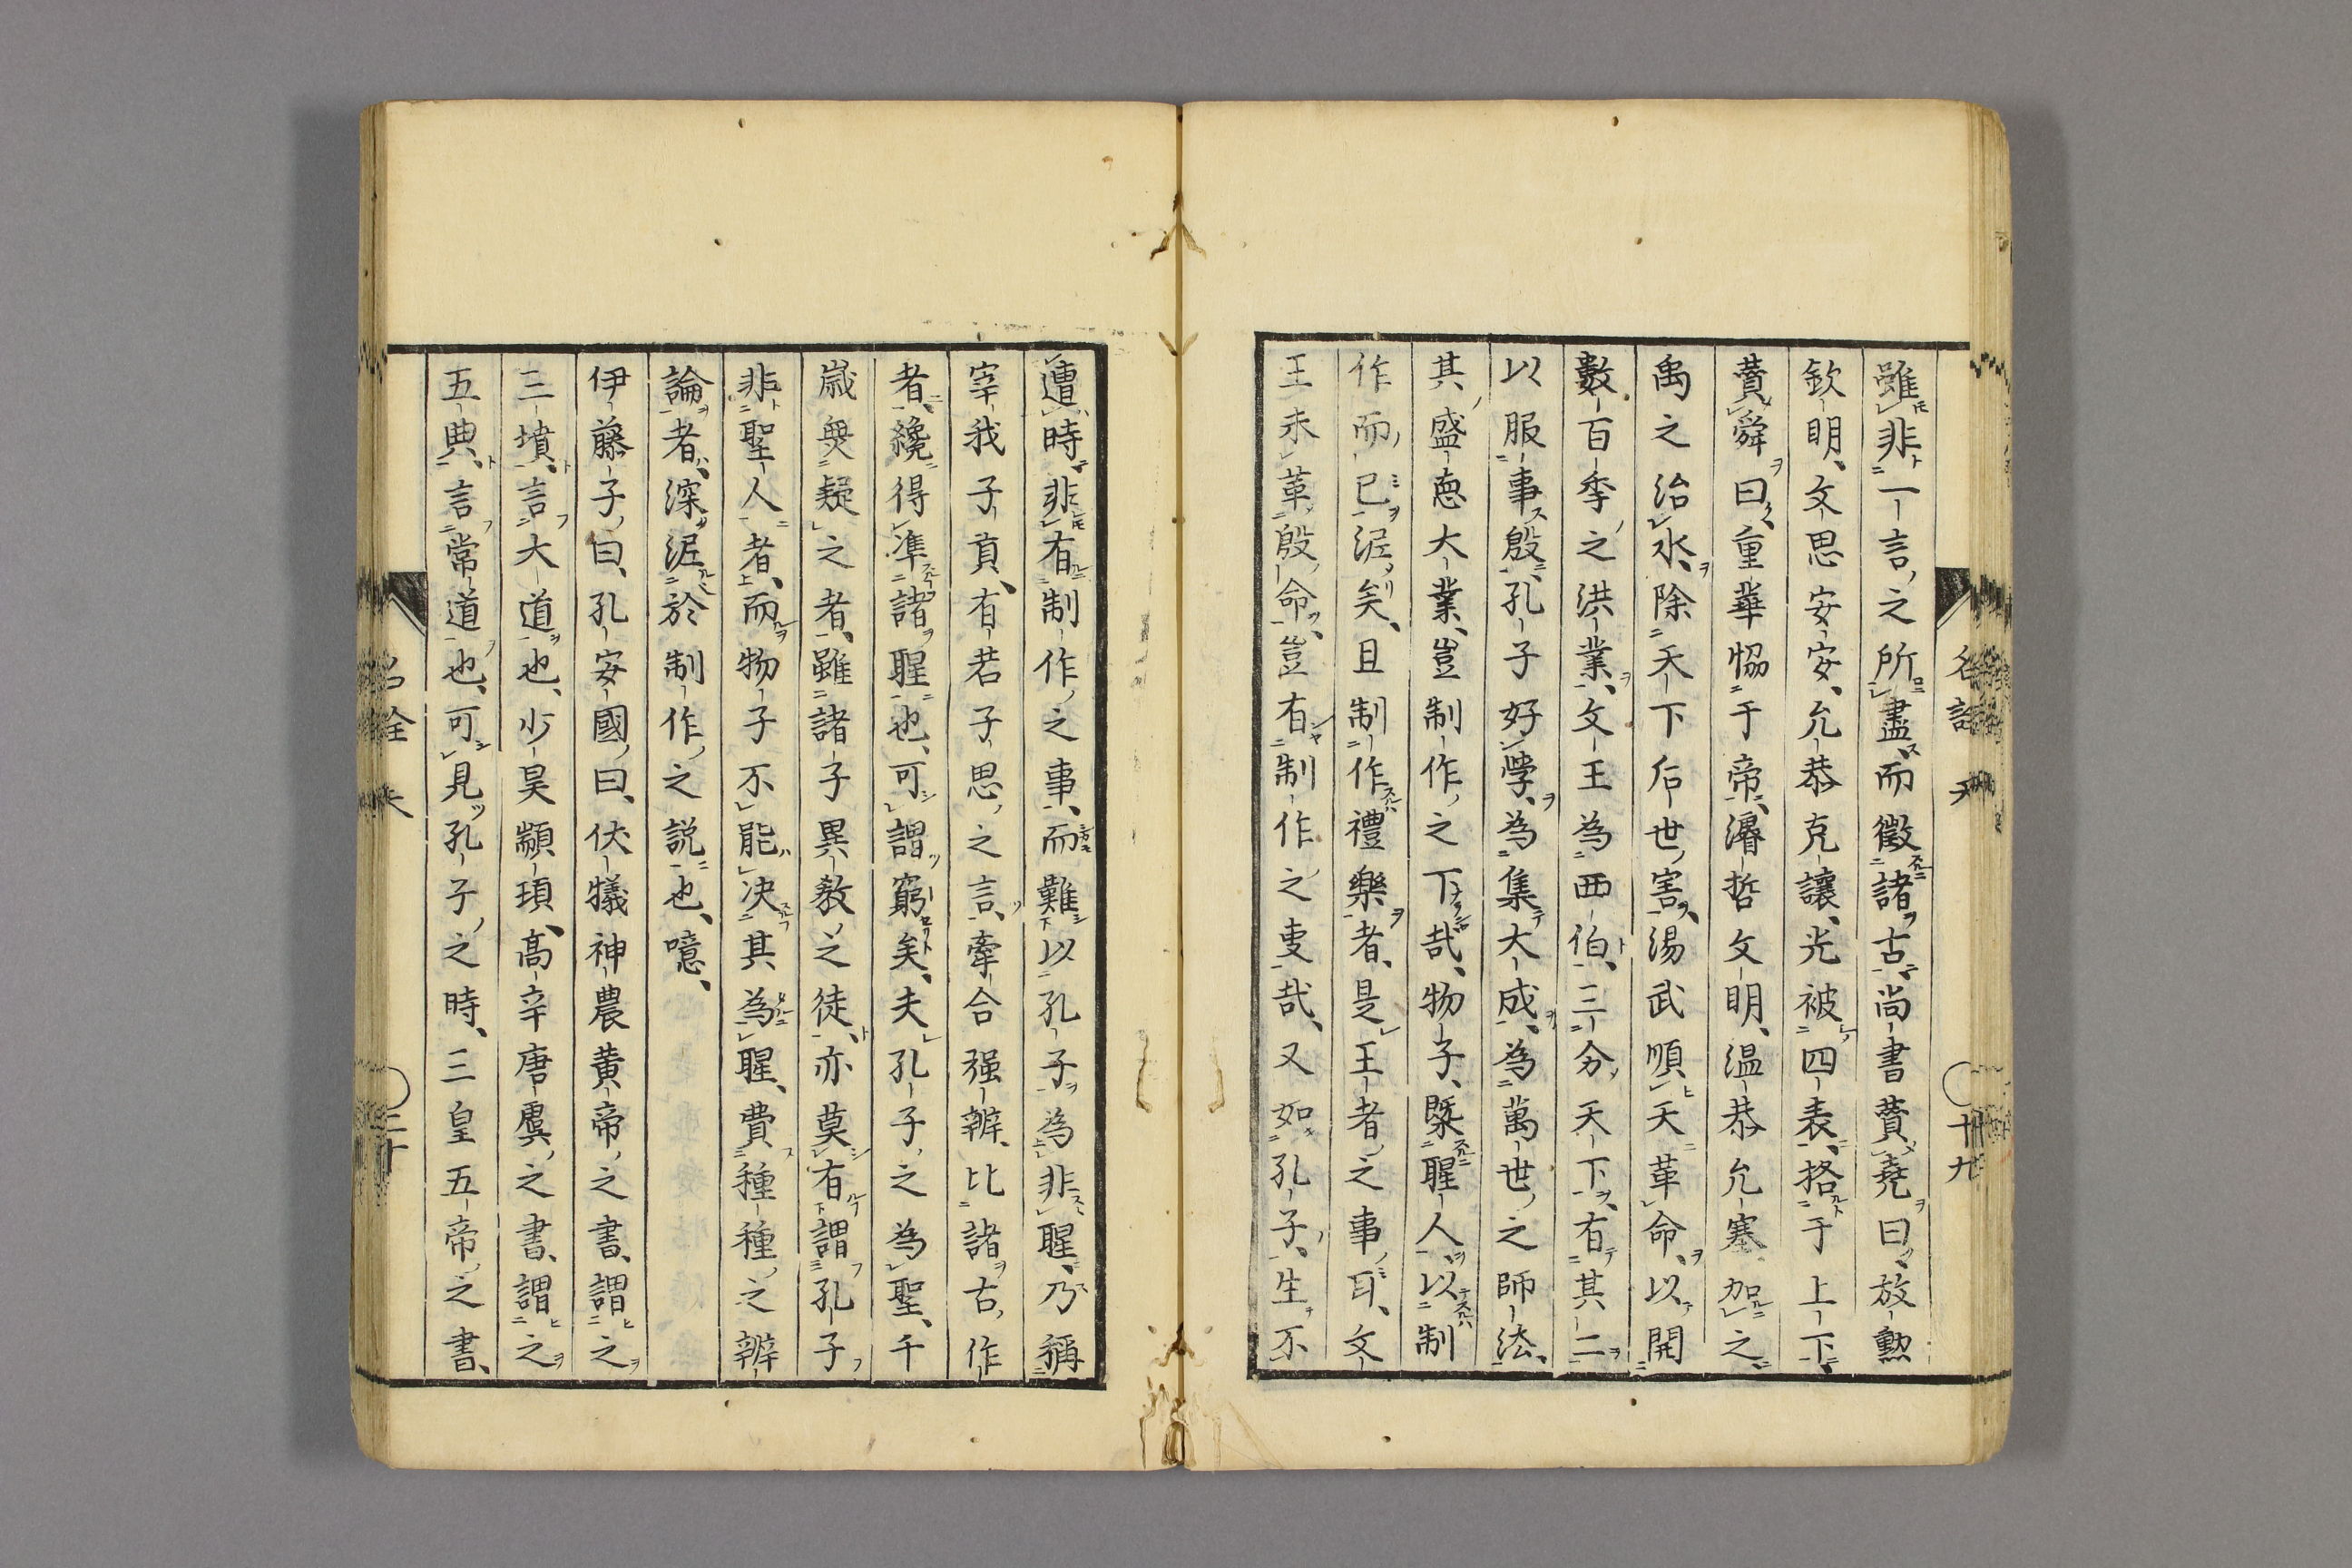 雖非一言之所盡而徵諸古尚書賛堯曰放勲
欽明文思安安允恭克讓光被四表格于上下
賛舜曰重華恊于帝濬哲文明温恭允塞加之
禹之治水除天下后世害湯武順天革命以開
數百季之洪業文王為西伯三分天下有其二
以服事殷孔子好學為集大成為萬世之師法
其盛悳大業豈制作之下哉物子槩聖人以制
作而已泥矣且制作禮樂者是王者之事耳文
王未革殷命豈有制作之叓哉又如孔子生不
遭時非有制作之事而難以孔子為非聖乃稱
宰我子貢有若子思之言牽合强辨比諸古作
者纔得準諸聖也可謂窮矣夫孔子之為聖千
嵗無疑之者雖諸子異教之徒亦莫有謂孔子
非聖人者而物子不能决其為聖費種種之辨
論者深泥於制作之説也噫
伊藤子曰孔安國曰伏犠神農黄帝之書謂之
三墳言大道也少昊顓頊高辛唐虞之書謂之
五典言常道也可見孔子之時三皇五帝之書
名詮 天
廿九
名詮 天
三十